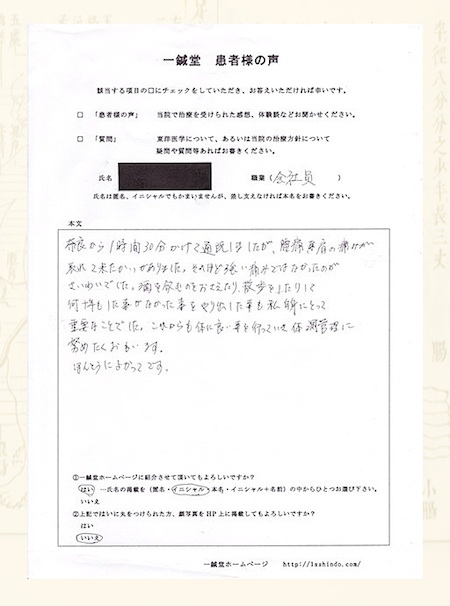 一鍼堂　患者様の声
該当する項目の口にチェックをしていただき、お答えいただければ幸いです。
□　「患者様の声」　当院で治療を受けられた感想、体験談などお聞かせください。
□　「質問」　東洋医学について、あるいは当院の治療方針について
疑問や質問等あればお書きください。
氏名　職業（会社員　）
氏名は匿名、イニシャルでもかまいませんが、差し支えなければ本名をお書きください。
本文
奈良から1時間30分かけて通院しましたが、腰痛と肩の痛みが
取れて来たかいがありました。それほど強い痛みではなかったのが
さいわいでした。酒を飲むのをおさえたり、散歩をしたりして
何年もした事がなかった事をやり出した事も私自身にとって
重要なことでした。これからも体に良い事を行っていき体調管理に
努めたくおもいます。
ほんとうによかったです。
①一鍼堂ホームページに紹介させて頂いてもよろしいですか？
はい　―氏名の掲載を（匿名・イニシャル・本名・イニシャル＋名前）の中からひとつお選び下さい。
いいえ
②上記ではいに丸をつけられた方、顔写真をHP上に掲載してもよろしいですか？
はい
いいえ
一鍼堂ホームページ　http://1sshindo.com/